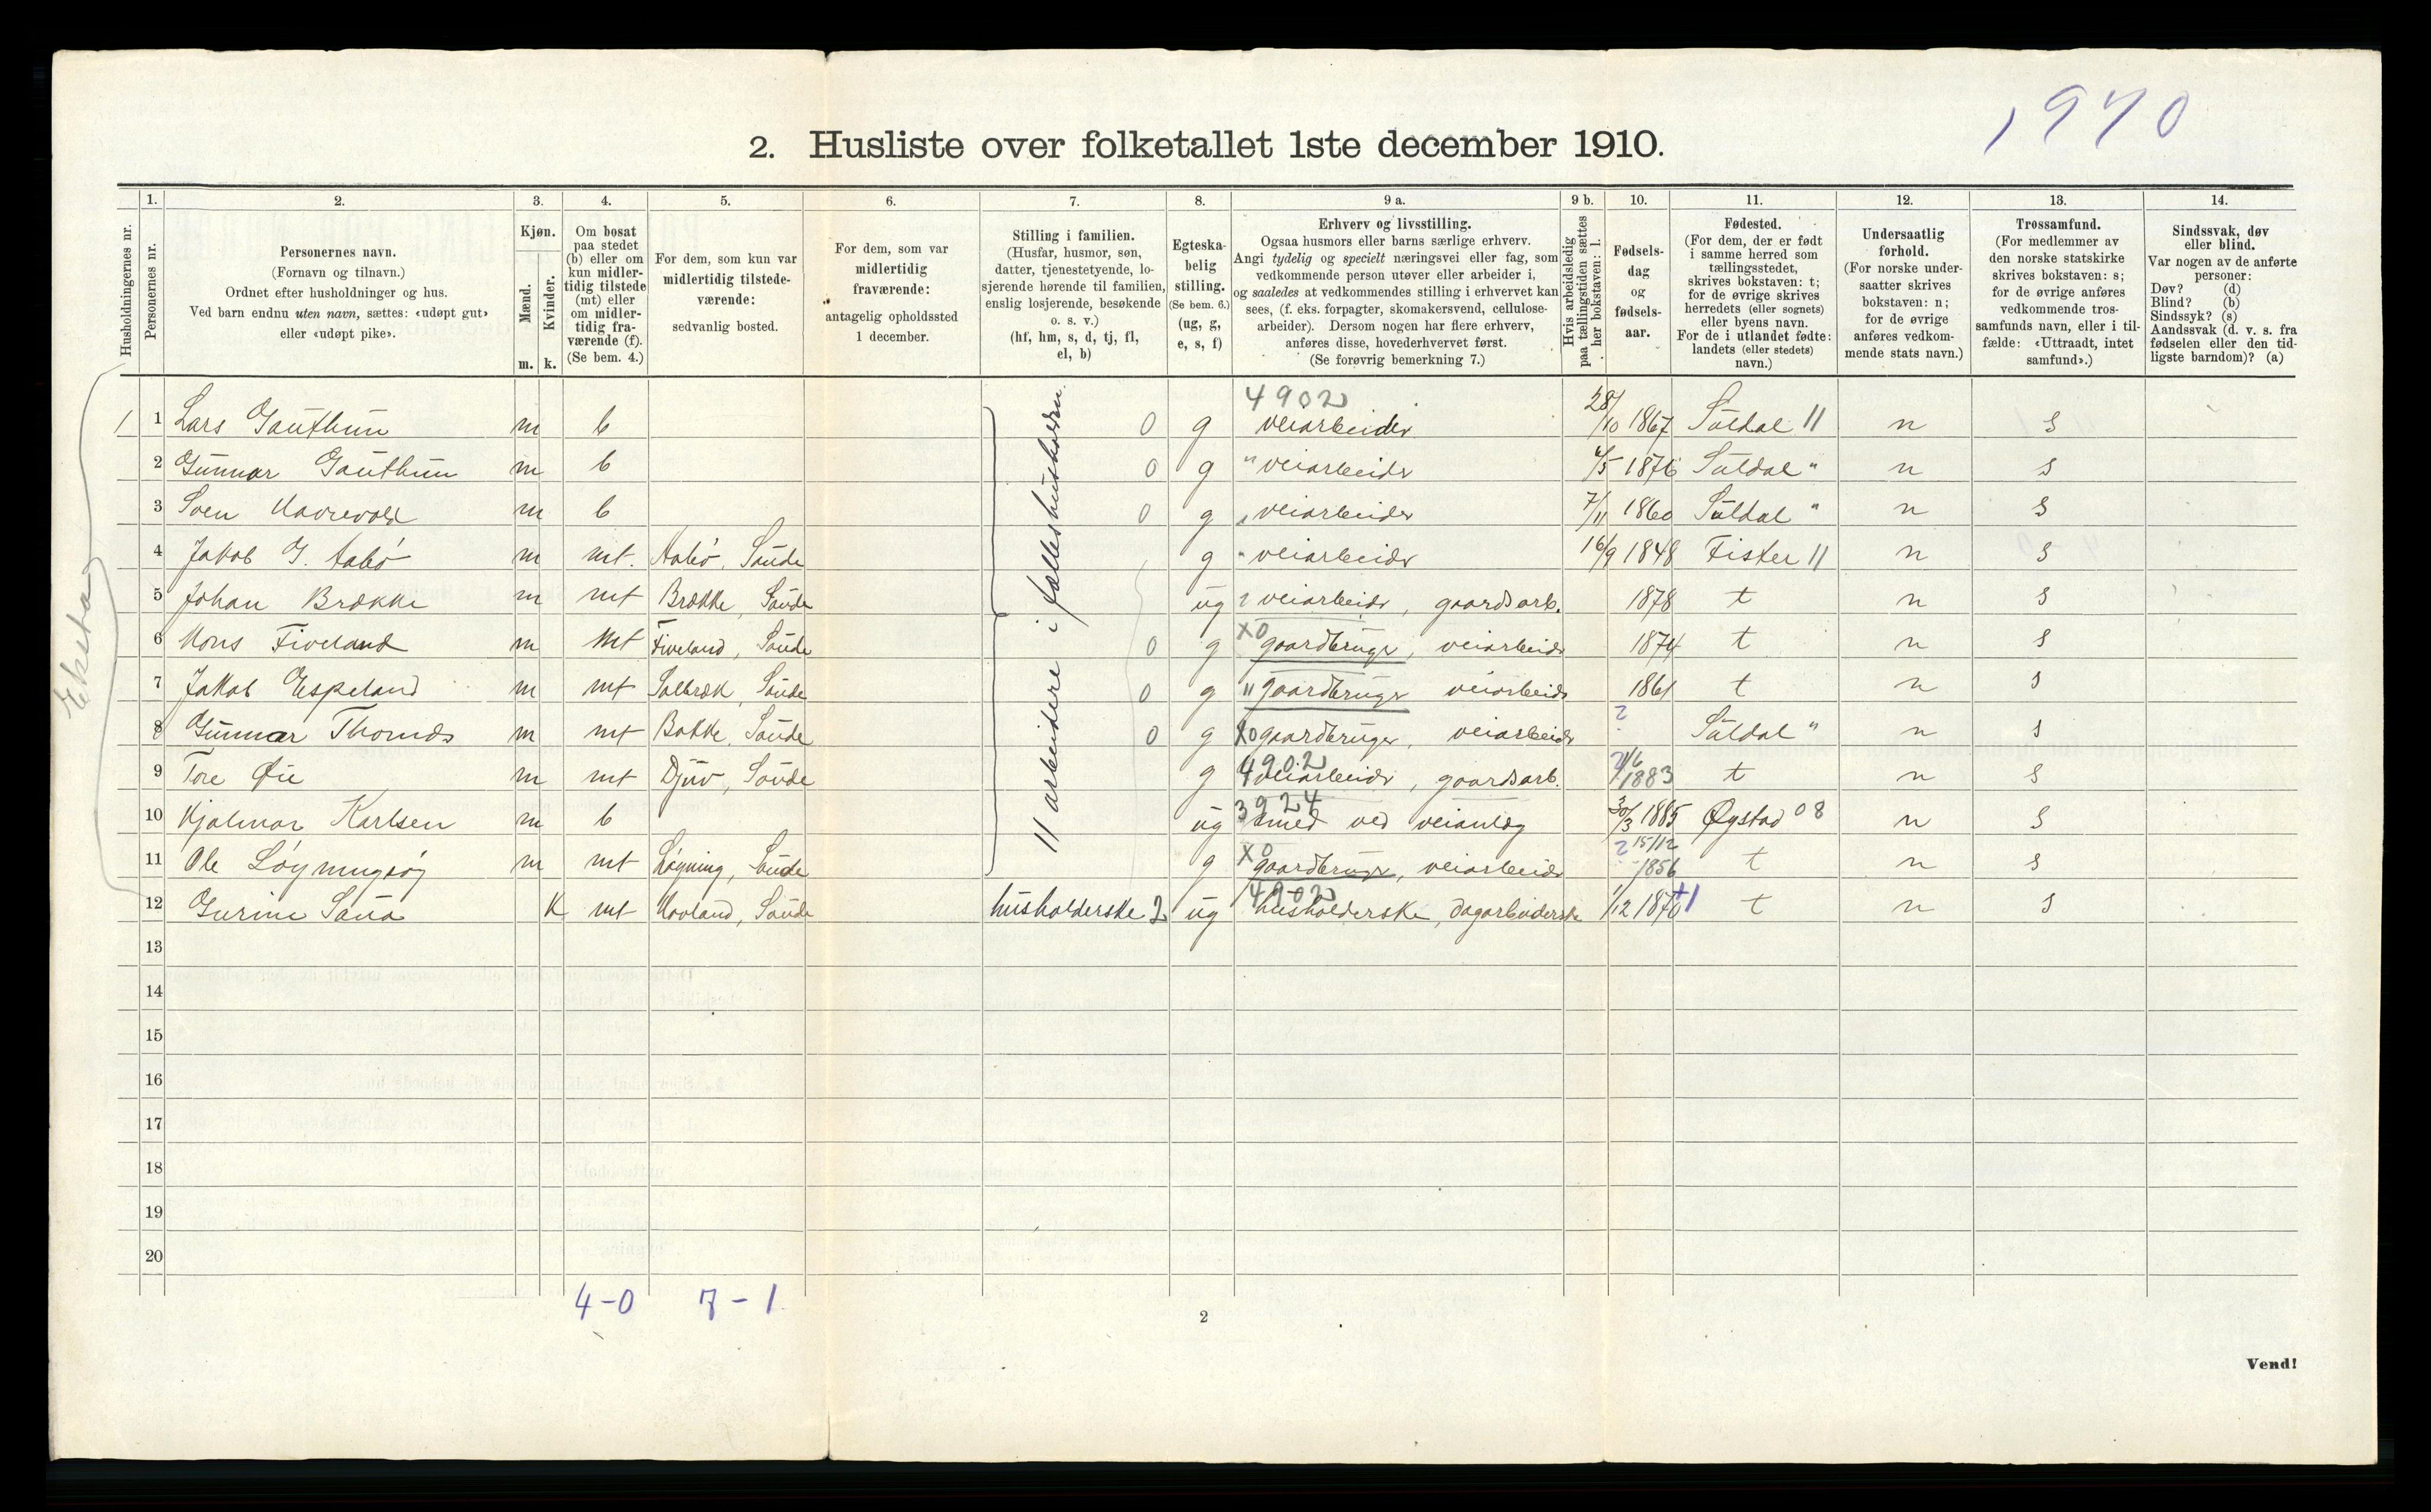 1940
2. Husliste over folketallet 1ste december 1910.
Husholdningernes nr.
1.
Personernes nr.
2.
Personernes navn.
(Fornavn og tilnavn.)
Ordnet efter husholdninger og hus.
Ved barn endnu uten navn, sættes: «udøpt gut»
eller «udøpt pike».
3.
Kjøn.
Mænd.
Kvinder.
m. k.
4.
Om bosat
paa stedet
(b) eller om
kun midler-
tidig tilstede
(mt) eller
om midler-
tidig fra-
værende (f).
(Se bem. 4.)
5.
For dem, som kun var
midlertidig tilstede-
værende:
sedvanlig bosted.
6.
For dem, som var
midlertidig
fraværende:
antagelig opholdssted
1 december.
7.
Stilling i familien.
(Husfar, husmor, søn,
datter, tjenestetyende, lo-
sjerende hørende til familien,
enslig losjerende, besøkende
o. s. v.)
(hf, hm, s, d, tj, fl,
el, b)
8.
Egteska-
belig
stilling.
(Se bem. 6.)
(ug, g,
e, s, f)
9 a.
Erhverv og livsstilling.
Ogsaa husmors eller barns særlige erhverv.
Angi tydelig og specielt næringsvei eller fag, som
vedkommende person utøver eller arbeider i,
og saaledes at vedkommendes stilling i erhvervet kan
sees, (f. eks. forpagter, skomakersvend, cellulose-
arbeider). Dersom nogen har flere erhverv,
anføres disse, hovederhvervet først.
(Se forøvrig bemerkning 7.)
9 b.
Hvis arbeidsledig
paa tællingstiden sættes
her bokstaven: l.
10.
Fødsels-
dag
og
fødsels-
aar.
11.
Fødested.
(For dem, der er født
i samme herred som
tællingsstedet,
skrives bokstaven: t;
for de øvrige skrives
herredets (eller sognets)
eller byens navn.
For de i utlandet fødte:
landets (eller stedets)
navn.)
12.
Undersaatlig
forhold.
(For norske under-
saatter skrives
bokstaven: n;
for de øvrige
anføres vedkom-
mende stats navn.)
13.
Trossamfund.
(For medlemmer av
den norske statskirke
skrives bokstaven: s;
for de øvrige anføres
vedkommende tros-
samfunds navn, eller i til-
fælde: «Uttraadt, intet
samfund».)
14.
Sindssvak, døv
eller blind.
Var nogen av de anførte
personer:
Døv? (d)
Blind? (b)
Sindssyk? (s)
Aandssvak (d. v. s. fra
fødselen eller den tid-
ligste barndom)? (a)
11 arbeidere i fælleshusholdn.
4902
1 1 Lars Gauthun m b 0 g veiarbeider 28/10 1867 Suldal 11 n s
2 Gunnar Gauthun m b 0 g " veiarbeider 4/5 1876 Suldal " n s
3 Sven Havrevold m b 0 g " veiarbeider 7/11 1860 Suldal " n s
4 Jakob G. Aabø m mt. Aabø, Saude g " veiarbeider 16/9 1848 Fister 11 n s
5 Johan Brække m mt Brække, Saude ug veiarbeider, gaardsarb. 1878 t n s
6 Mons Fiveland m mt Fiveland, Saude 0 g X0 gaardbruger, veiarbeider 1874 t n s
7 Jakob Espeland m mt Solbræk, Saude 0 g " gaardbruger veiarbeider 1861 t n s
8 Gunnar m mt Bakke, Saude 0 g X0 gaardbruger, veiarbeider ? Suldal " n s
9 Tore Øie m mt Djuv, Saude g 4902 veiarbeider, gaardsarb. 1883 t n s
10 Hjalmar Karlsen m b ug 3924 smed ved veianlæg 30/3 1885 Øystad 08 n s
11 Ole m mt Løyning, Saude g X0 gaardbruger, veiarbeider ? 15/12 1856 t n s
12 Gurine Saua K mt Hovland, Saude husholderske 2 ug 4902 husholderske, dagarbeiderske 1/12 1870 +1 t n s
13
14
15
16
17
18
19
20
4-0 7-1
2
Vend!